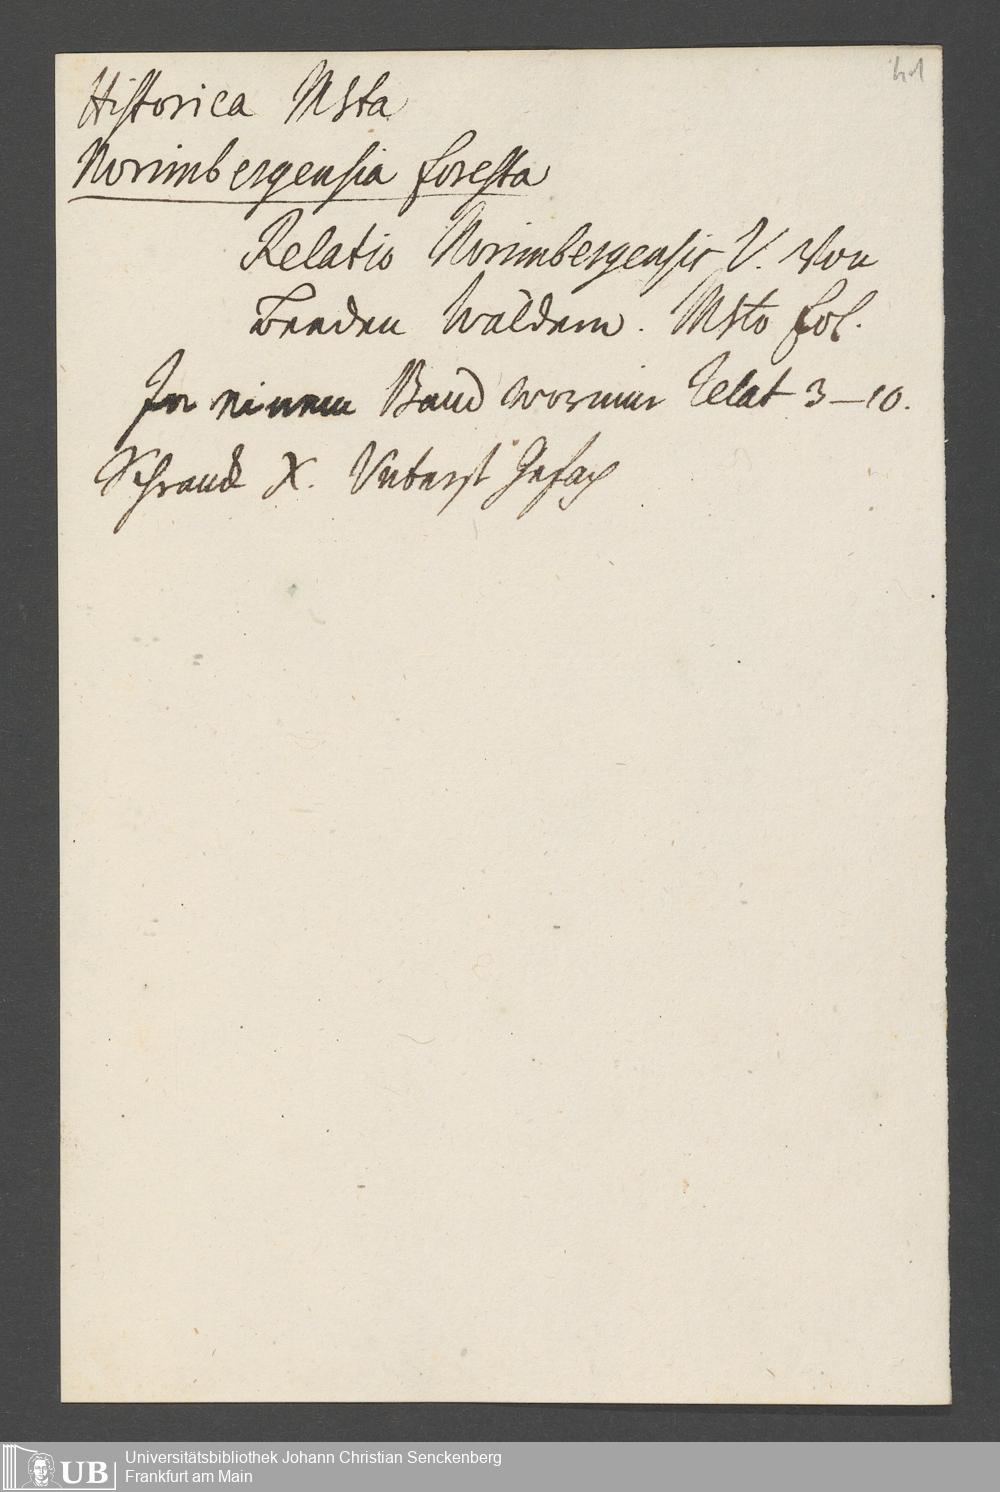 41
Historica Msta
Norimbergensia foresta
Relatio Norimbergensis V. Von
Beeden Wäldern. Msto fol.
In einem Band worinnen Relat 3-10.
Schranck X. Unterst Gefach
UB
Universitätsbibliothek Johann Christian Senckenberg
Frankfurt am Main